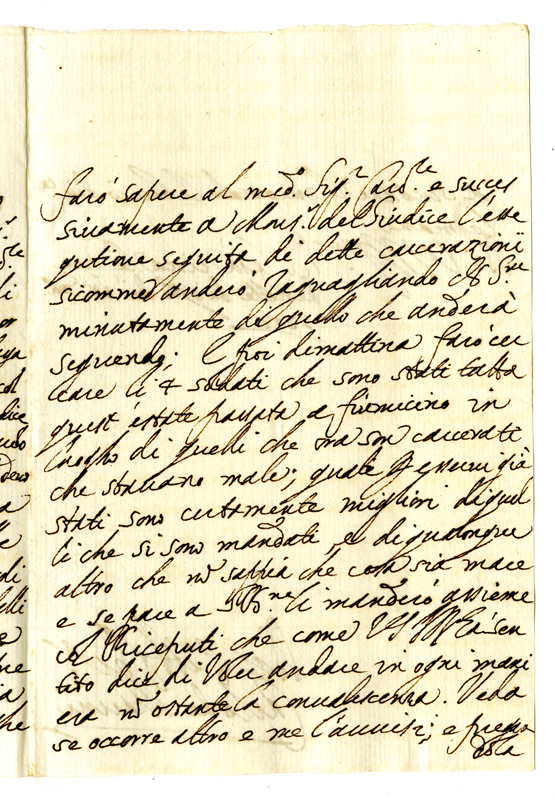 farò sapere al med.º Sig.r Card.le e succes
sivamente a Mons.r del Giudice l'esse
gutione seguita di dette carcerazioni
sicomme anderò raguagliando
minutamente di quello che anderà
seguendo; e poi dimattina farò cer
care li 4 soldati che sono stati tutta
quest'estate passata a fiumicino in
luogho di quelli che ora son carcerati
che stavano male; quale p esservi già
stati sono certamente migliori di quel
li che si sono mandati, e di qualonque
altro che nõ sappia che cosa sia mare
e se pare a li manderò assieme
col Riceputi che come sen
tito dice di voler andare in ogni mani
era nõ ostante la convalescenza. Veda
se occorre altro e me l'avvisi; e